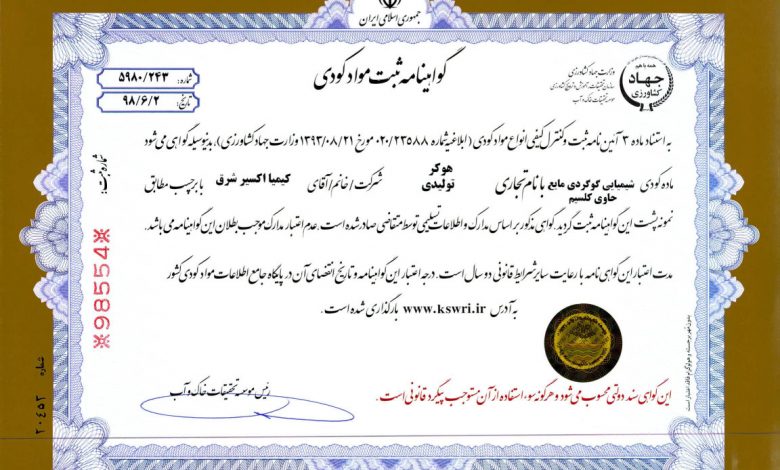 جمهوری اسلامی ایران
همه با هم
جهاد
کشاورزی
وزارت جهاد کشاورزی
سازمان تحقیقات، آموزش و ترویج کشاورزی
موسسه تحقیقات خاک و آب
گواهینامه ثبت مواد کودی
شماره: ۵۹۸۰/۲۴۳
تاریخ: ۹۸/۶/۲
به استناد ماده ۳ آئین نامه ثبت و کنترل کیفی انواع مواد کودی (ابلاغیه شماره ۰۲۰/۲۳۵۸۸ مورخ ۱۳۹۳/۰۸/۲۱ وزارت جهاد کشاورزی)، بدینوسیله گواهی می‌شود
ماده کودی شیمیایی گوگردی مایع حاوی کلسیم با نام تجاری هوکر تولیدی شرکت/خانم/آقای کیمیا اکسیر شرق با برچسب مطابق
نمونه پشت این گواهینامه ثبت گردید. گواهی مذکور بر اساس مدارک و اطلاعات تسلیمی توسط متقاضی صادر شده است. عدم اعتبار مدارک موجب بطلان این گواهینامه می باشد.
مدت اعتبار این گواهی نامه با رعایت سایر شرایط قانونی دو سال است. درجه اعتبار این گواهینامه و تاریخ انقضای آن در پایگاه جامع اطلاعات مواد کودی کشور
به آدرس www.kswri.ir بارگذاری شده است.
رئیس موسسه تحقیقات خاک و آب
این گواهی سند دولتی محسوب می‌شود و هرگونه سوء استفاده از آن مستوجب پیگرد قانونی است.
شماره ثبت:
※98554※
شماره ۲۰۴۵۳
بدون مهر برجسته و هولوگرام فاقد اعتبار است